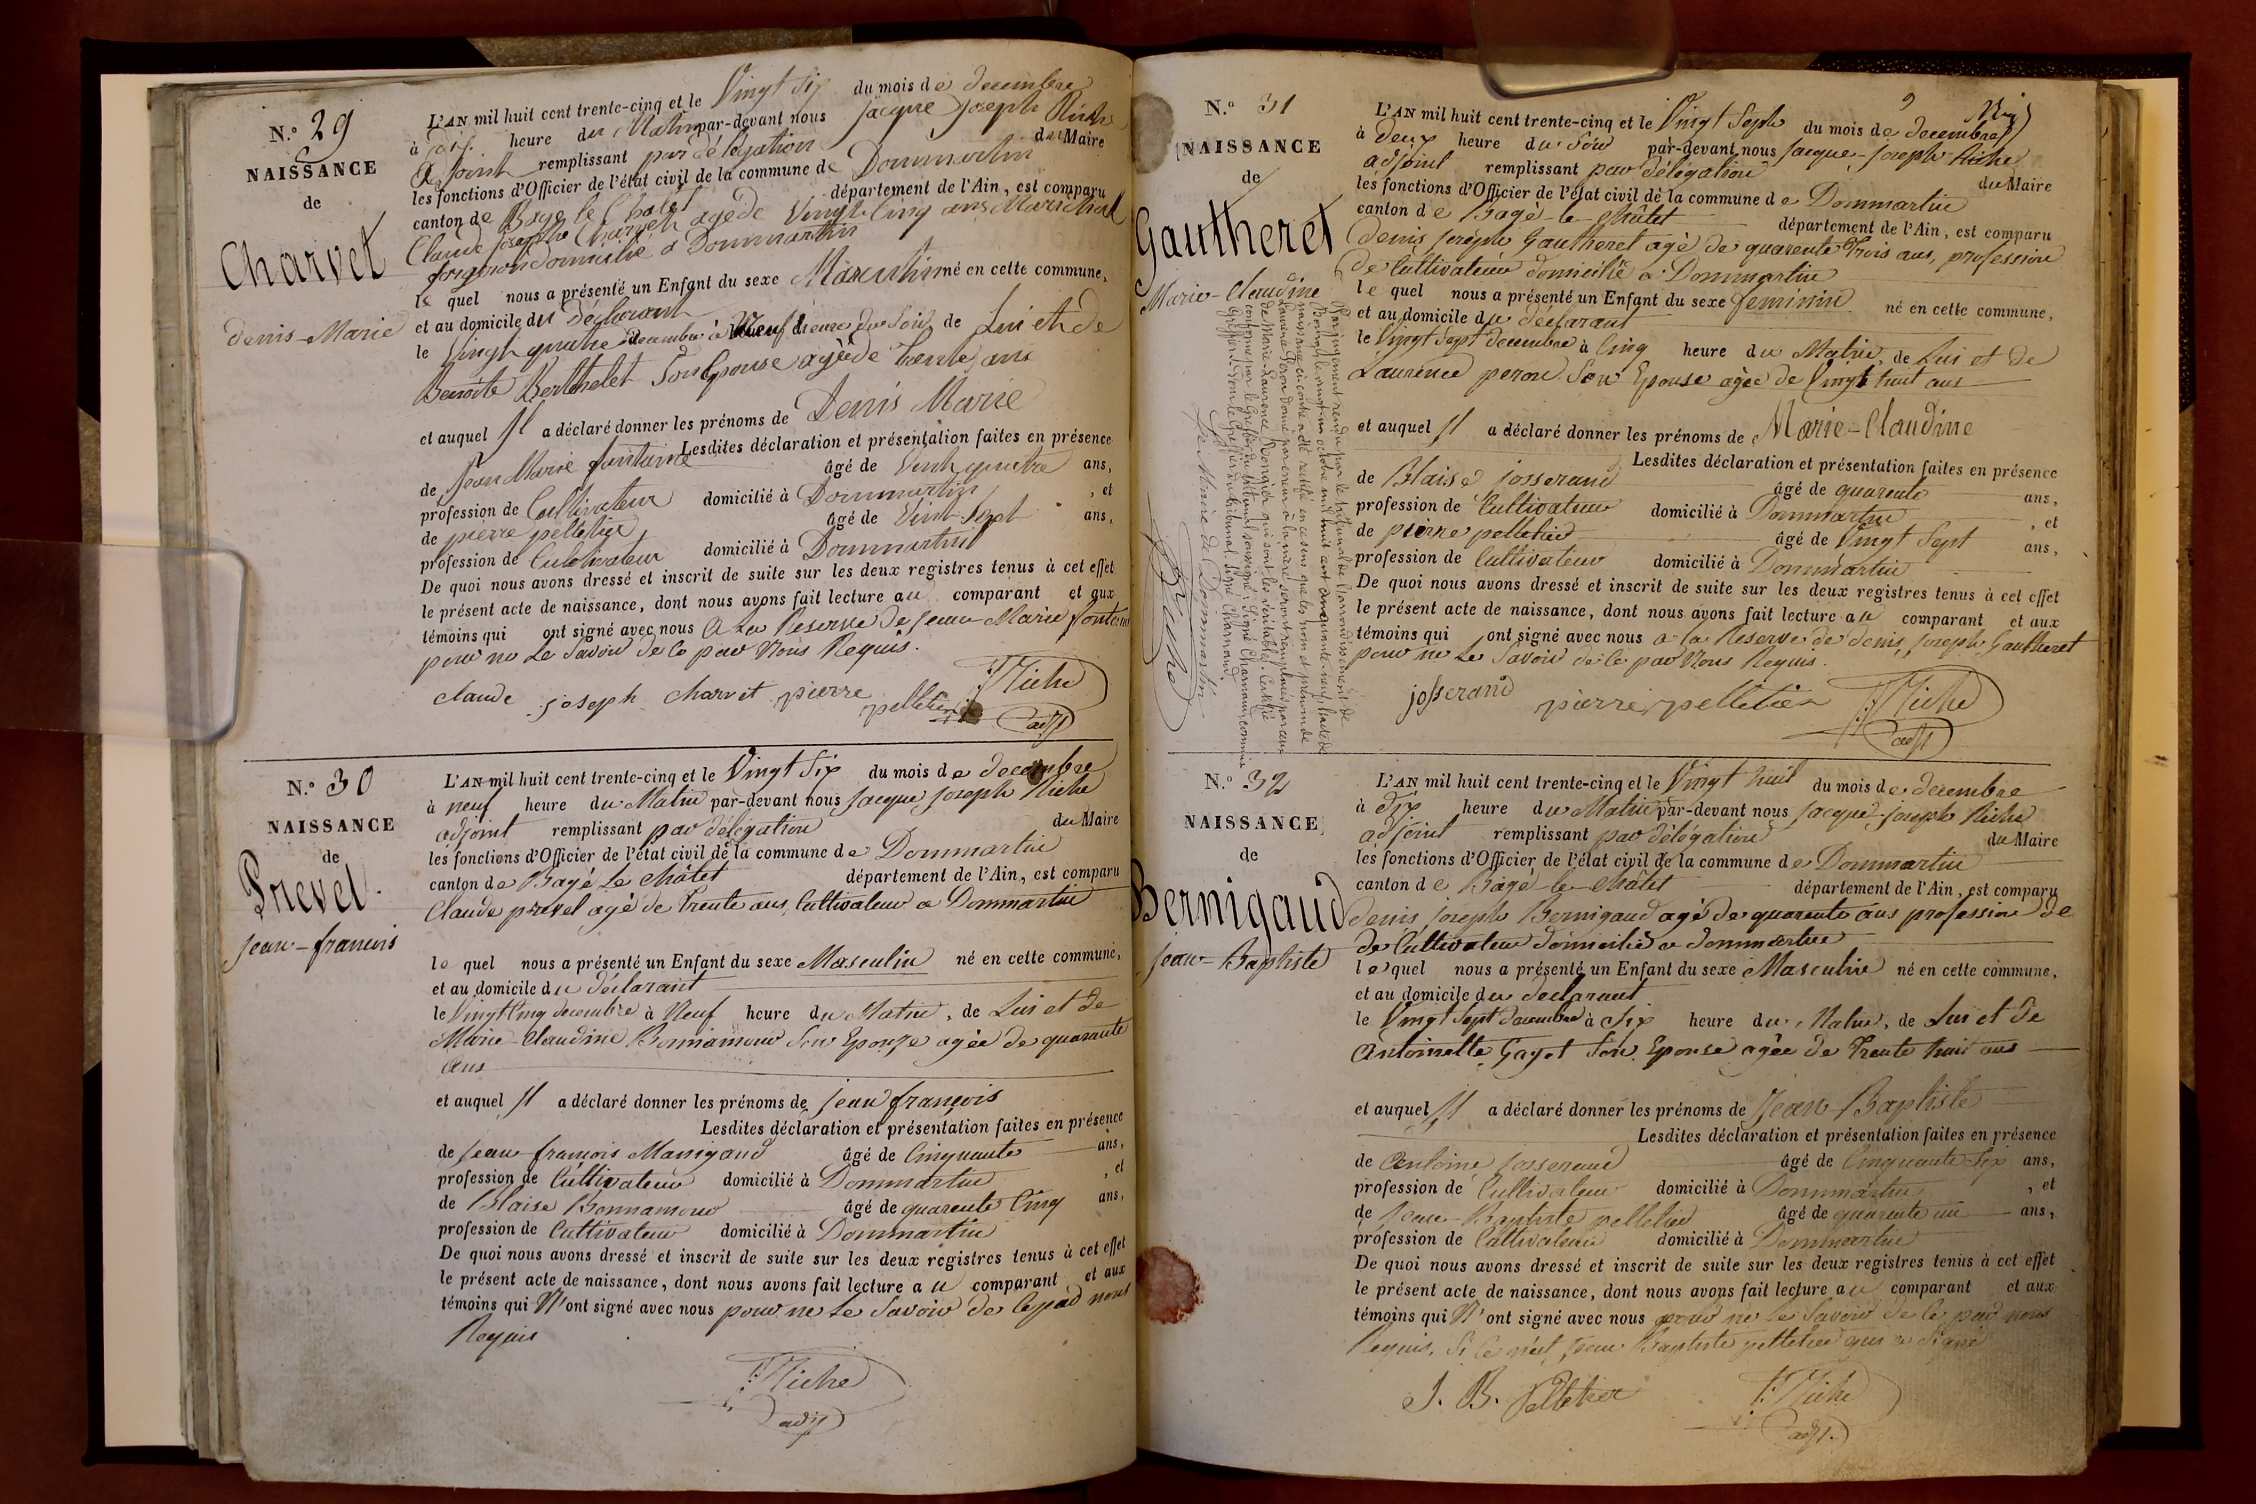 N.º 29
NAISSANCE
de
Charvet
denis-Marie
L'AN mil huit cent trente-cinq et le Vingt Six du mois de decembre
à heure du Matin par-devant nous jacque joseph Riche
adjoint remplissant par délégation du Maire
les fonctions d'Officier de l'état civil de la commune de Dommartin
canton de Bage le Chatel département de l'Ain, est comparu
Claude joseph Charvet agé de Vingt Cinq ans Marechal
domicilié a Dommartin
le quel nous a présenté un Enfant du sexe Masculin né en cette commune,
et au domicile du Declarant
le Vingt quatre decembre à Neuf heure du Soir de Lui et de
Benoite Berthelet Son Epouse agée de trente ans
et auquel Il a déclaré donner les prénoms de Denis Marie
Lesdites déclaration et présentation faites en présence
de Jean Marie fontaine âgé de Vint quatre ans,
profession de Cultivateur domicilié à Dommartin, et
de pierre pelletier âgé de Vint Sept ans,
profession de Cultivateur domicilié à Dommartin
De quoi nous avons dressé et inscrit de suite sur les deux registres tenus à cet effet
le présent acte de naissance, dont nous avons fait lecture au comparant et aux
témoins qui ont signé avec nous a La Reserve de jean-Marie fontaine
pour ne Le Savoir de Ce par Nous Requis.
claude joseph charvet pierre pelletier J: J: Riche
adjt
N.º 30
NAISSANCE
de
Prevel.
jean-francois
L'AN mil huit cent trente-cinq et le Vingt Six du mois de decembre
à neuf heure du Matin par-devant nous jacque joseph Riche
adjoint remplissant par délégation du Maire
les fonctions d'Officier de l'état civil de la commune de Dommartin
canton de Bagé Le Châtel département de l'Ain, est comparu
Claude prevel agé de trente ans, Cultivateur a Dommartin
le quel nous a présenté un Enfant du sexe Masculin né en cette commune,
et au domicile du déclarant
le Vingt Cinq decembre à Neuf heure du Matin, de Lui et de
Marie-Claudine Bonnamour Son Epouze agée de quarante
ans
et auquel Il a déclaré donner les prénoms de jean françois
Lesdites déclaration et présentation faites en présence
de jean-francois Manigand âgé de Cinquante ans,
profession de Cultivateur domicilié à Dommartin, et
de Blaise Bonnamour âgé de quarente Cinq ans,
profession de Cultivateur domicilié à Dommartin
De quoi nous avons dressé et inscrit de suite sur les deux registres tenus à cet effet
le présent acte de naissance, dont nous avons fait lecture au comparant et aux
témoins qui N'ont signé avec nous pour ne Le Savoir de Ce par nous
Requis
J: J: Riche
adjt
N.º 31
NAISSANCE
de
Gautheret
Marie-Claudine
Par jugement rendu par le tribunal de l'arrondissement de
Bourg le vingt-un octobre mil huit cent cinquante-neuf, l'acte de
naissance ci-contre a été rectifié en ce sens que les nom et prénom de
Laurence Peron donné par erreur à la mère seront remplacés par ceux
de Marie-Laurence Mongier qui sont les véritables. Certifié
conforme par le Greffier du tribunal soussigné. Signé Charnaud, commis
greffier. Pour le Greffier du tribunal. Signé Charnaud
Le Maire de Dommartin
Riche
L'AN mil huit cent trente-cinq et le Vingt Sept du mois de decembre
à deux heure du Soir par-devant nous jacque-joseph Riche
adjoint remplissant par délégation du Maire
les fonctions d'Officier de l'état civil de la commune de Dommartin
canton de Bagé-le-Châtel département de l'Ain, est comparu
denis joseph Gautheret agé de quarente trois ans, profession
de Cultivateur domicilié a Dommartin
le quel nous a présenté un Enfant du sexe feminin né en cette commune,
et au domicile du déclarant
le Vingt Sept decembre à Cinq heure du Matin, de Lui et de
Laurence peron Son Epouse agée de Vingt huit ans
et auquel Il a déclaré donner les prénoms de Marie-Claudine
Lesdites déclaration et présentation faites en présence
de Blaise josserand âgé de quarente ans,
profession de Cultivateur domicilié à Dommartin, et
de pierre pelletier âgé de Vingt Sept ans,
profession de Cultivateur domicilié à Dommartin
De quoi nous avons dressé et inscrit de suite sur les deux registres tenus à cet effet
le présent acte de naissance, dont nous avons fait lecture au comparant et aux
témoins qui ont signé avec nous a la Reserve de denis joseph Gautheret
pour ne Le Savoir de Ce par Nous Requis.
josserand pierre pelletier J: J: Riche
adjt
N.º 32
NAISSANCE
de
Bernigaud
jean-Baptiste
L'AN mil huit cent trente-cinq et le Vingt huit du mois de decembre
à dix heure du Matin par-devant nous jacque-joseph Riche
adjoint remplissant par délégation du Maire
les fonctions d'Officier de l'état civil de la commune de Dommartin
canton de Bagé-le-Châtel département de l'Ain, est comparu
denis joseph Bernigaud agé de quarente ans profession de
de Cultivateur domicilié a dommartin
le quel nous a présenté un Enfant du sexe Masculin né en cette commune,
et au domicile du declarant
le Vingt Sept decembre à Six heure du Matin, de Lui et de
antoinette Gayot Son Epouse agée de trente huit ans
et auquel Il a déclaré donner les prénoms de Jean-Baptiste
Lesdites déclaration et présentation faites en présence
de antoine josserand âgé de Cinquante Six ans,
profession de Cultivateur domicilié à Dommartin, et
de jean-Baptiste pelletier âgé de quarente un ans,
profession de Cultivateur domicilié à Dommartin
De quoi nous avons dressé et inscrit de suite sur les deux registres tenus à cet effet
le présent acte de naissance, dont nous avons fait lecture au comparant et aux
témoins qui N'ont signé avec nous pour ne Le Savoir de Ce par nous
Requis, Si Ce n'est jean Baptiste pelletier qui a Signé
J. B. Pelletier J: J: Riche
adjt.